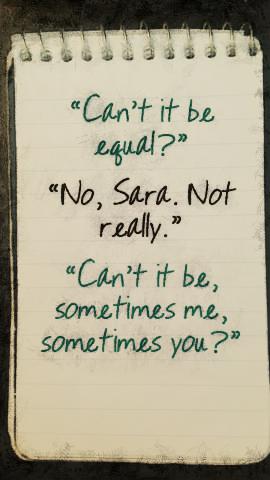 “Can't it be
equal?”
“No, Sara. Not
really.”
“Can't it be,
sometimes me,
sometimes you?”